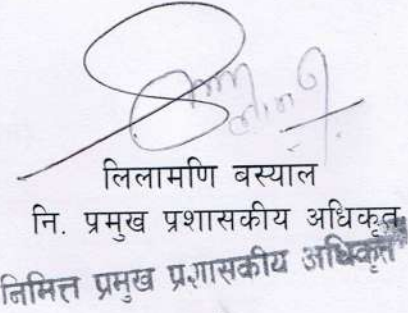 लिलामणि बस्याल
नि. प्रमुख प्रशासकीय अधिकृत
निमित्त प्रमुख प्रशासकीय अधिकृत